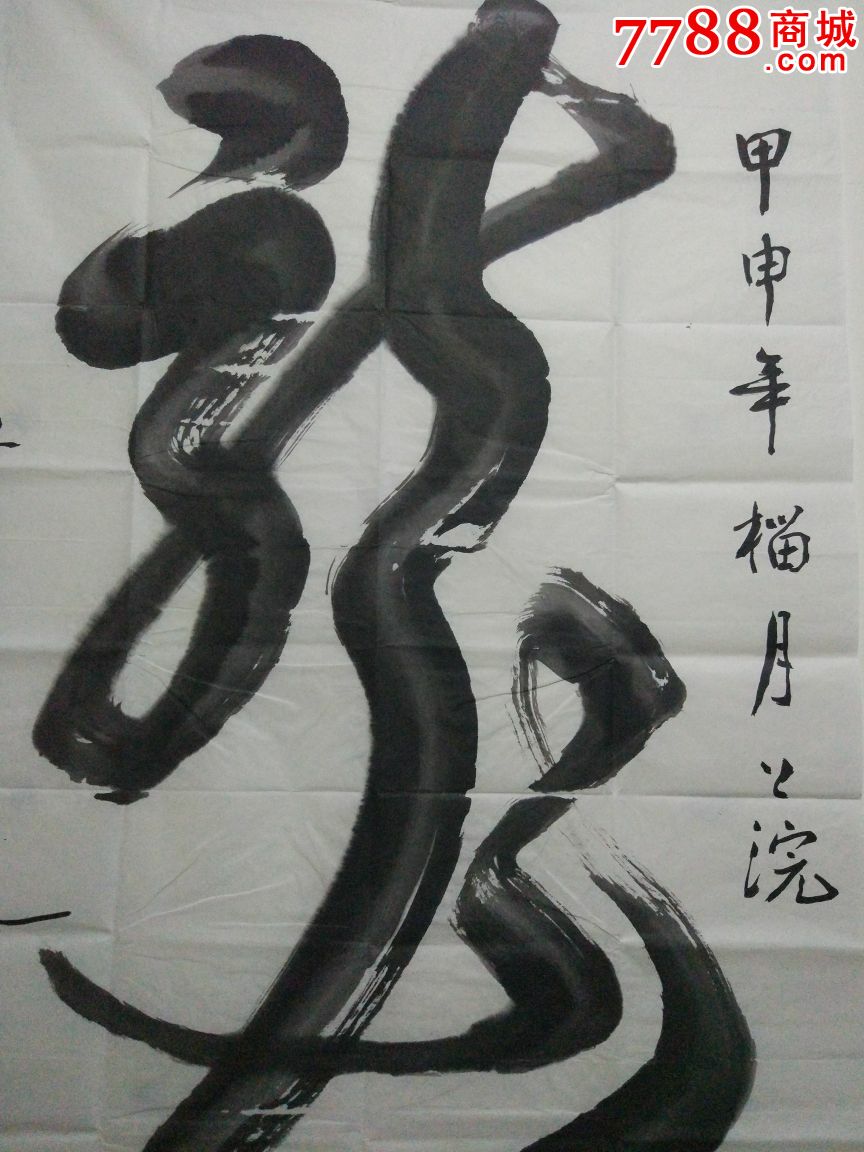 7788商城
.com
龍
甲申年榴月上浣